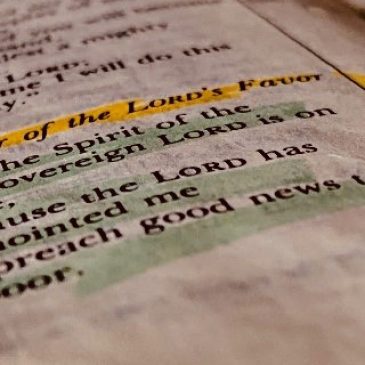 a mighty
LORD.
me I will do this
y.
r of the LORD'S Favor
he Spirit of the
Sovereign LORD is on
e,
use the LORD has
nointed me
preach good news t
oor.